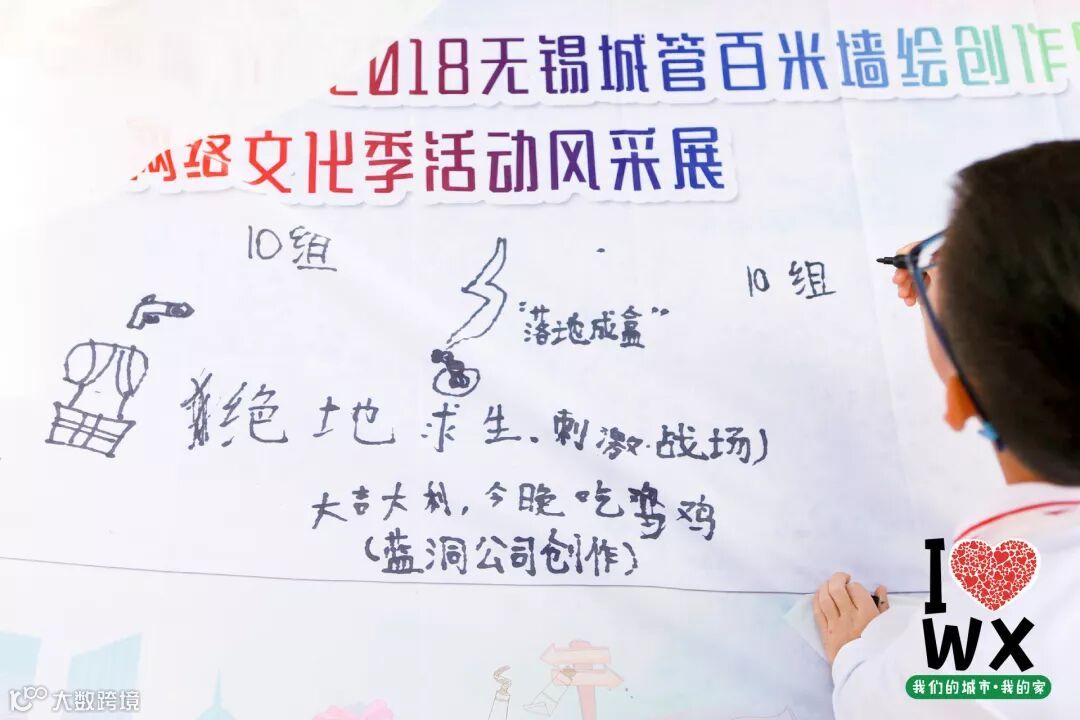 2018无锡城管百米墙绘创作
网络文化季活动风采展
10组
10组
“落地成盒”
绝地求生、刺激战场)
大吉大利，今晚吃鸡
(蓝洞公司创作)
I
WX
我们的城市·我的家
大数跨境